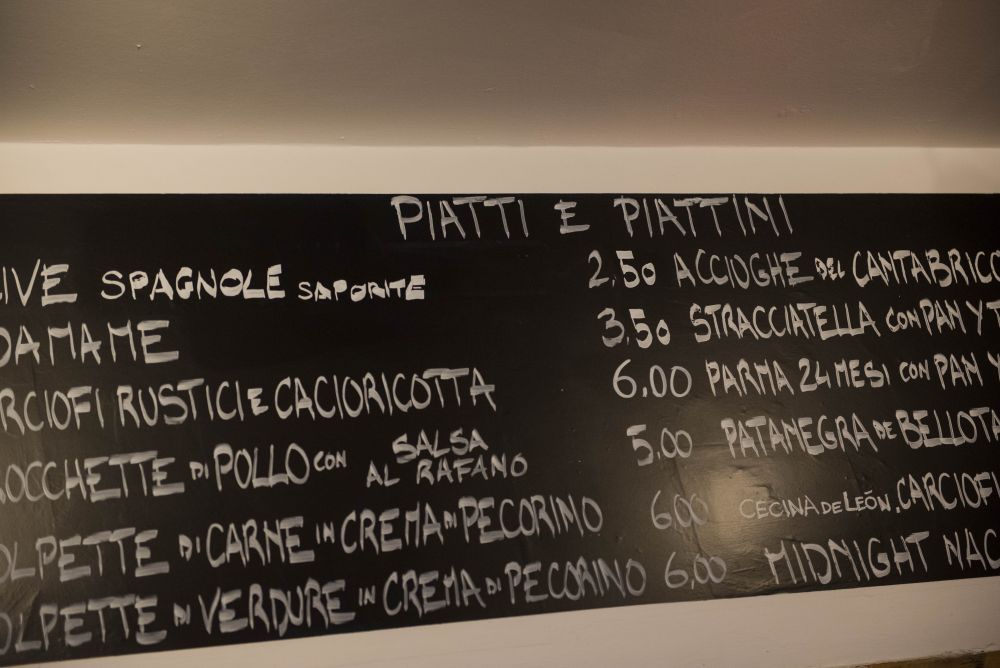 PIATTI E PIATTINI
IVE SPAGNOLE SAPORITE 2.50
DAMAME 3.50
RCIOFI RUSTICI E CACIORICOTTA 6.00
OCCHETTE DI POLLO CON SALSA AL RAFANO 5.00
OLPETTE DI CARNE IN CREMA DI PECORINO 6.00
OLPETTE DI VERDURE IN CREMA DI PECORINO 6,00
ACCIUGHE DEL CANTABRICO
STRACCIATELLA CON PAN Y T
PARMA 24 MESI CON PAN Y
PATANEGRA DE BELLOTA
CECINA DE LEÓN, CARCIOFI
MIDNIGHT NAC